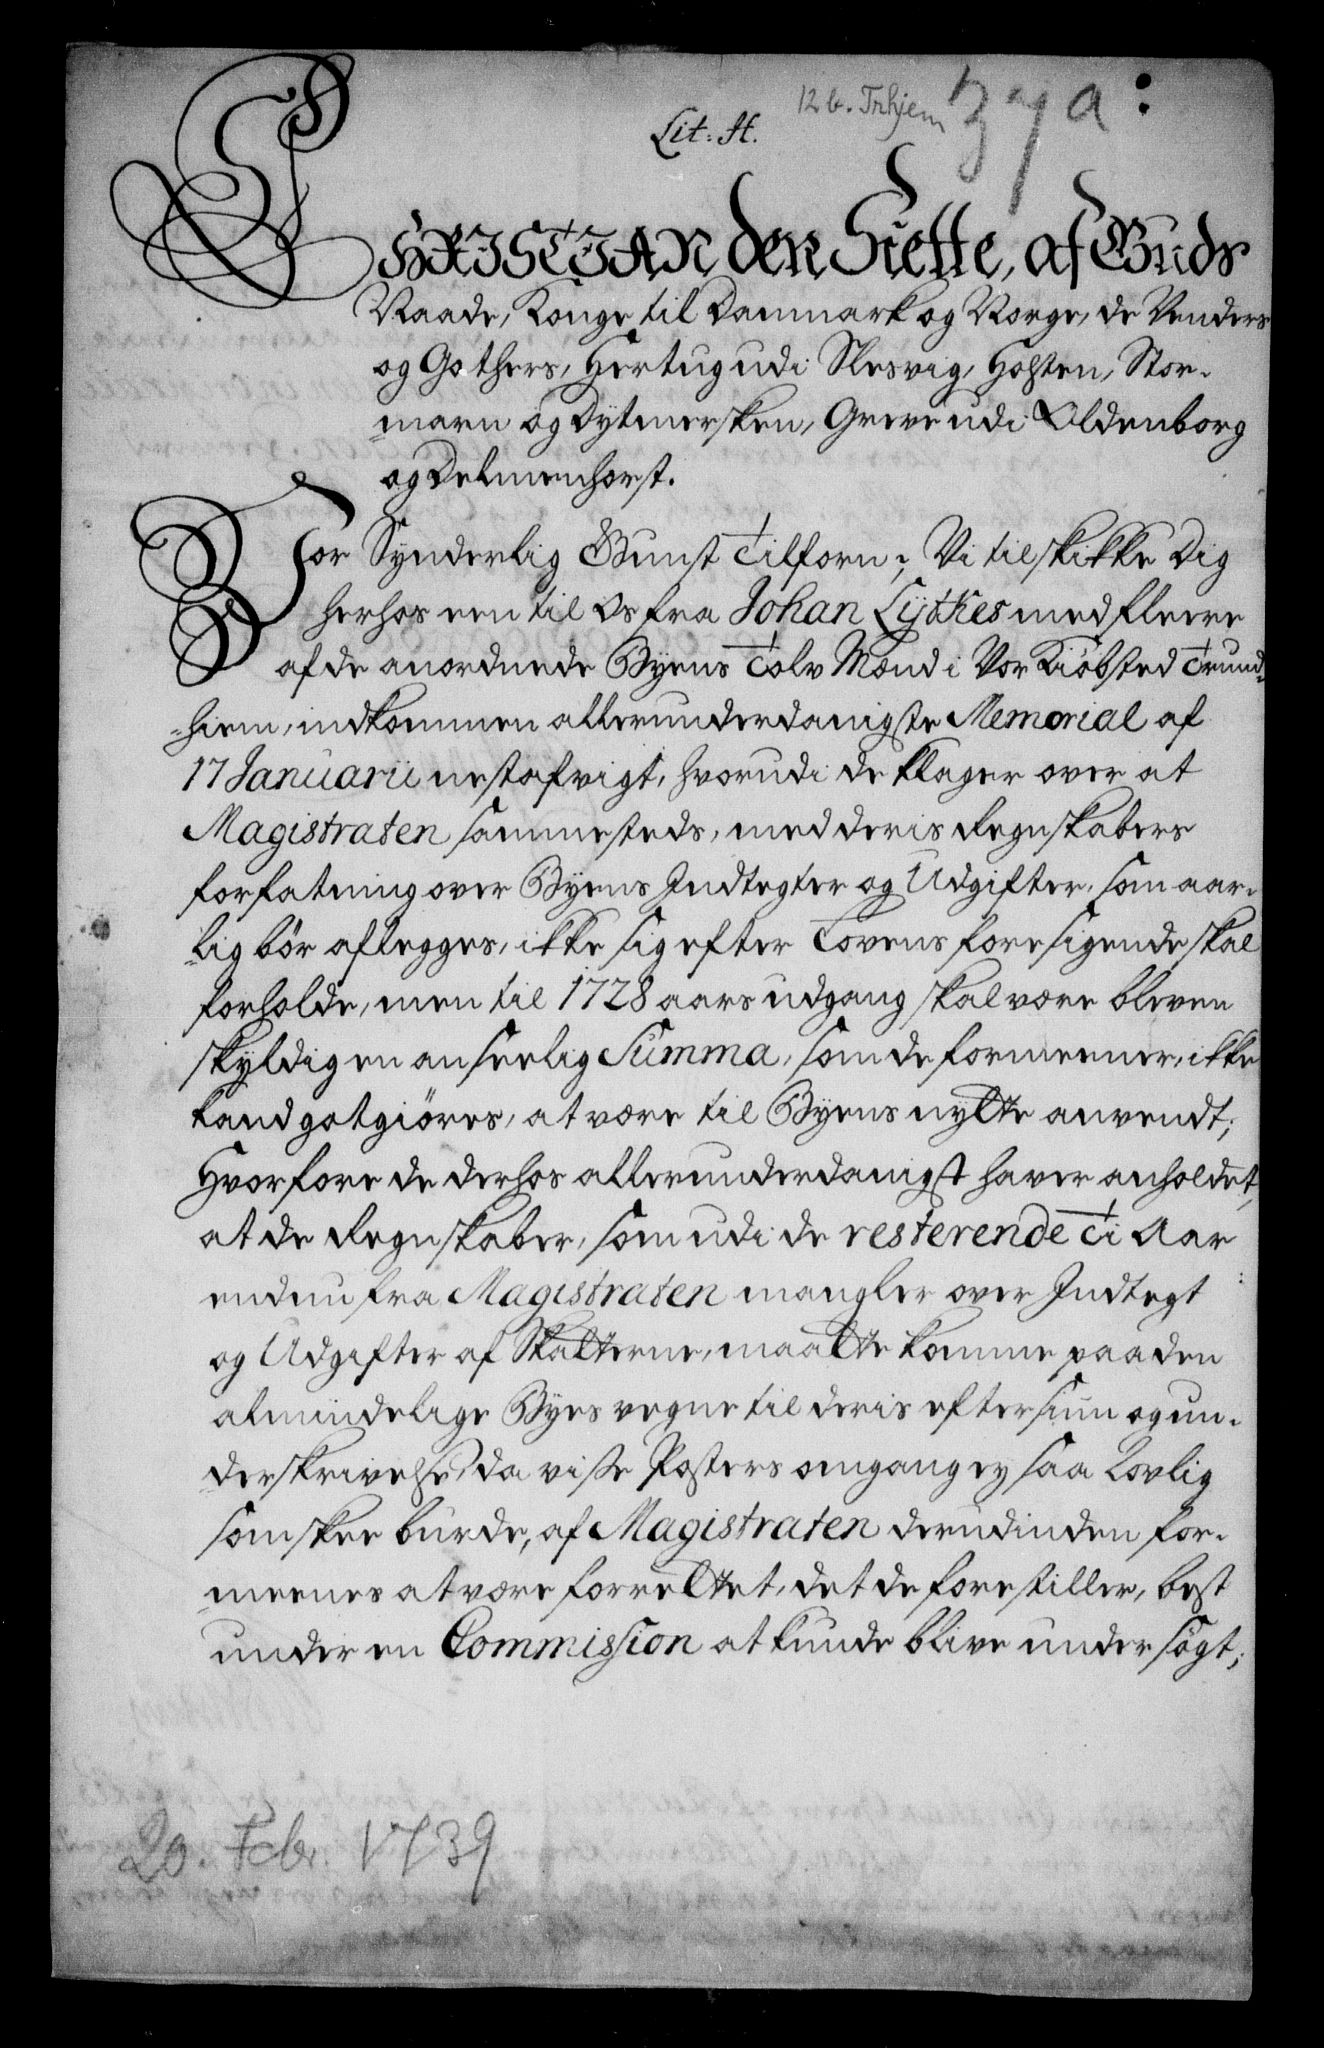 12 b. Trhjem 37 a:
Lit: H.
CHRISTIAN den Siette, af Guds
Naade, Konge til Danmark og Norge, de Venders
og Gothers, Hertug udi Slesvig, Holsten, Stor-
marn og Dytmersken, Greve udi Oldenborg
og Delmenhorst.
Vor Synderlig Gunst Tilforn; Vi tilskikke Dig
herhos een til Os fra Johan Lÿthes med fleere
af de anordnede Byens Tolv Mænd i Vor Kiøbsted Trund-
-hiem, indkommen allerunderdanigste Memorial af
17 Januarii nestafvigt, hvorudi de klager over at
Magistraten sammesteds, med deris Regnskabers
forfatning over Byens Indtegter og Udgifter, som aar-
-lig bør aflegges, ikke sig efter Lovens foresigende skal
forholde, men til 1728 aars udgang skal være bleven
skyldig en anseelig Summa, som de formeener, ikke
kand gotgiöres, at være til Byens nytte anvendt;
Hvorfore de derhos allerunderdanigst haver anholdet,
at de Regnskaber, som udi de resterende Ti Aar
endnu fra Magistraten mangler over Indtegt
og Udgifter af Skatterne, maatte komme paa den
almindelige Byes vegne til deris eftersiun og un-
derskrivelse, da visse Posters omgang ey saa Lovlig
som skee burde, af Magistraten derudinden for-
meenes at være forrettet, det de forestiller, best
under en Commission at kunde blive undersögt;
20. Febr. 1739